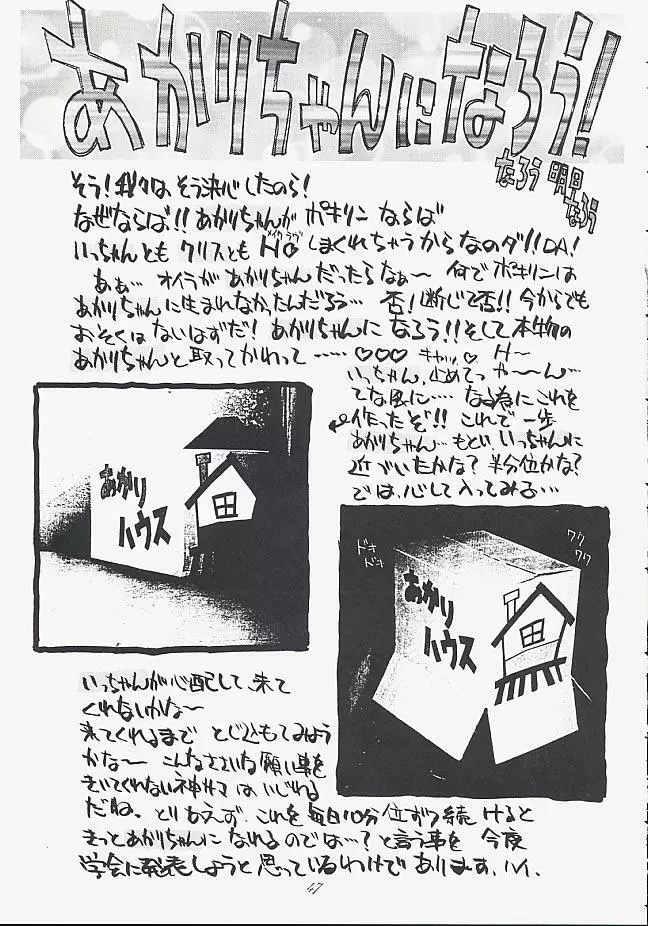 あかりちゃんになろう!
なろう 明日なろう
そう!我々は、そう決心したのら!
なぜならば!!あかりちゃんが ポキリン ならば
いっちゃんとも クリスとも HO しまくれちゃうからなのダ!!DA!
あぁ…オイラが あかりちゃん だったらなぁ〜 何で ポキリンは
あかりちゃんに生まれなかったんだろう… 否!断じて否!!今からでも
おそくは ないはずだ! あかりちゃんに なろう!!そして本物の
あかりちゃんと取ってかわって……♡♡♡ キャッ。♡ H〜
いっちゃん、止めてっ やーん…
てな風に… なる為にこれを
作ったぞ!! これで一歩
あかりちゃん…もとい いっちゃんに
近づいたかな?半分位かな?
では、心して入ってみる…
あかり
ハウス
ドキ
ドキ
ワク
ワク
あかり
ハウス
いっちゃんが心配して、来て
くれないかな〜
来てくれるまで とじ込もてみよう
かな〜 こんなささいな願い事を
きいてくれない神サマは、いじわる
だね。とりあえず、これを毎日10分位ずつ続けると
きっとあかりちゃんに なれるのでは…?と言う事を 今度
学会に発表しようと思っているわけであります、ハイ、
47